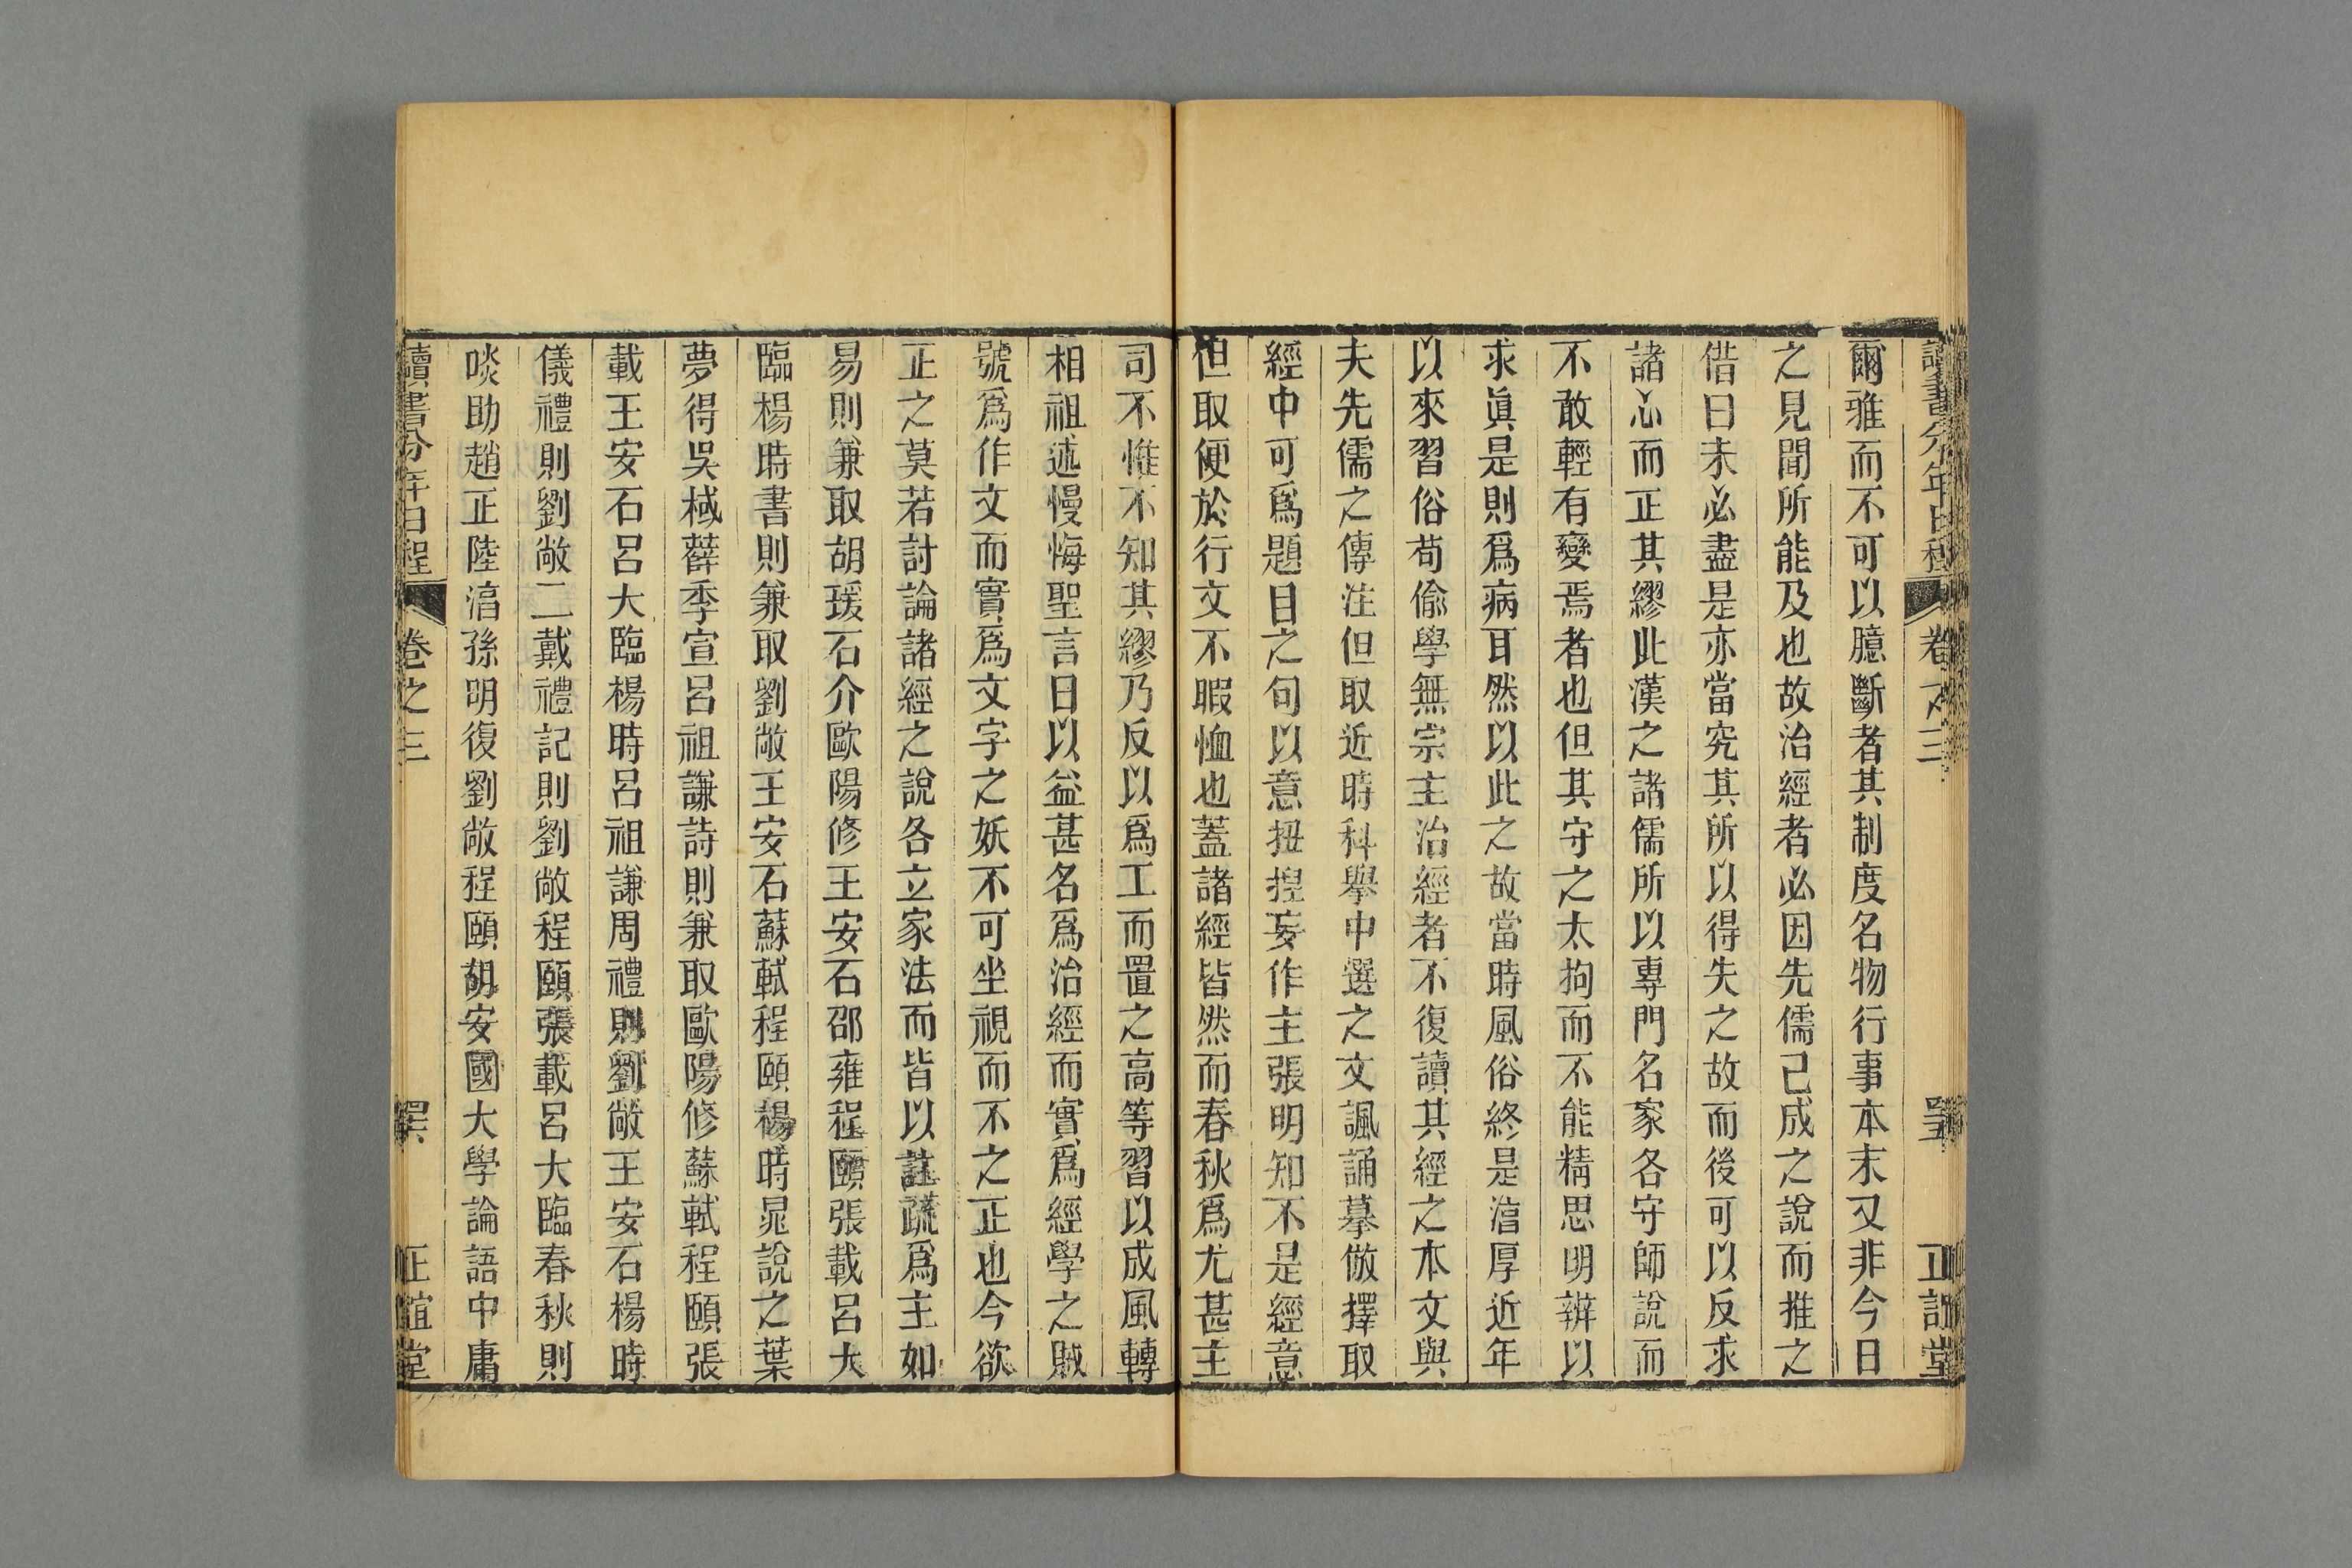 讀書分年日程 卷之三 正誼堂
爾雅而不可以臆斷者其制度名物行事本末又非今日
之見聞所能及也故治經者必因先儒已成之說而推之
借曰未必盡是亦當究其所以得失之故而後可以反求
諸心而正其繆此漢之諸儒所以專門名家各守師說而
不敢輕有變焉者也但其守之太拘而不能精思明辨以
求眞是則爲病耳然以此之故當時風俗終是淳厚近年
以來習俗苟偷學無宗主治經者不復讀其經之本文與
夫先儒之傳注但取近時科舉中選之文諷誦摹倣擇取
經中可爲題目之句以意扭揑妄作主張明知不是經意
但取便於行文不暇恤也蓋諸經皆然而春秋爲尤甚主
司不惟不知其繆乃反以爲工而置之高等習以成風轉
相祖述慢侮聖言日以益甚名爲治經而實爲經學之賊
號爲作文而實爲文字之妖不可坐視而不之正也今欲
正之莫若討論諸經之說各立家法而皆以註疏爲主如
易則兼取胡瑗石介歐陽修王安石邵雍程頤張載呂大
臨楊時書則兼取劉敞王安石蘇軾程頤楊時晁說之葉
夢得吳棫薛季宣呂祖謙詩則兼取歐陽修蘇軾程頤張
載王安石呂大臨楊時呂祖謙周禮則劉敞王安石楊時
儀禮則劉敞二戴禮記則劉敞程頤張載呂大臨春秋則
啖助趙正陸淳孫明復劉敞程頤胡安國大學論語中庸
讀書分年日程 卷之三 正誼堂